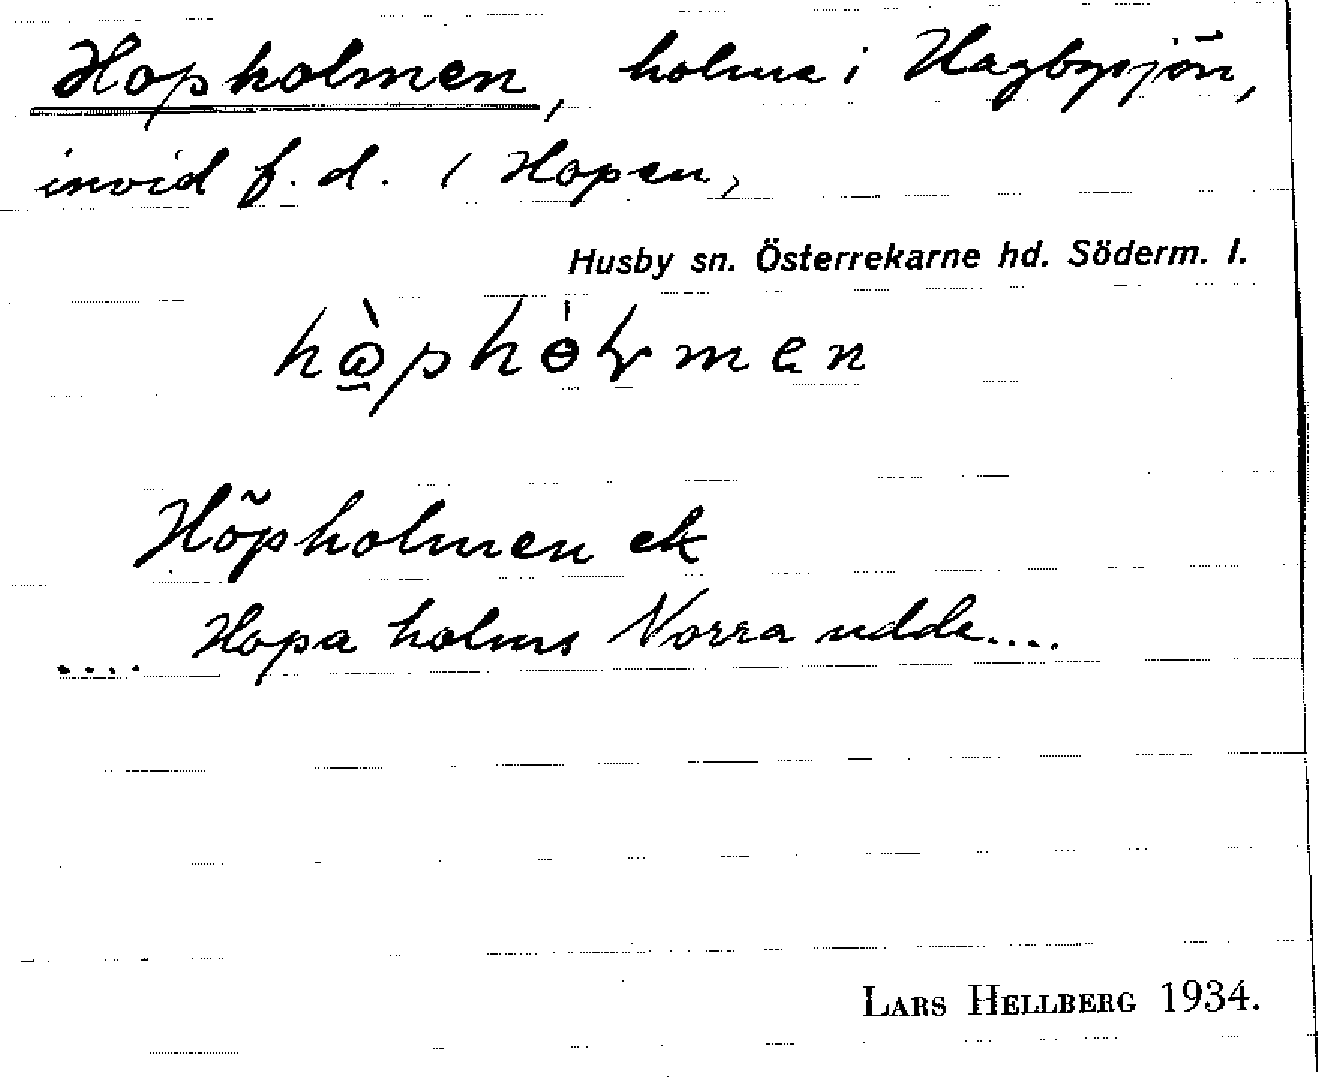 Hopholmen, holme i Hagbysjön,
invid f.d. / Hopen,
Husby sn. Österrekarne hd. Söderm. l.
Höpholmen ek
.... Hopa holms Norra udde....
LARS HELLBERG 1934.